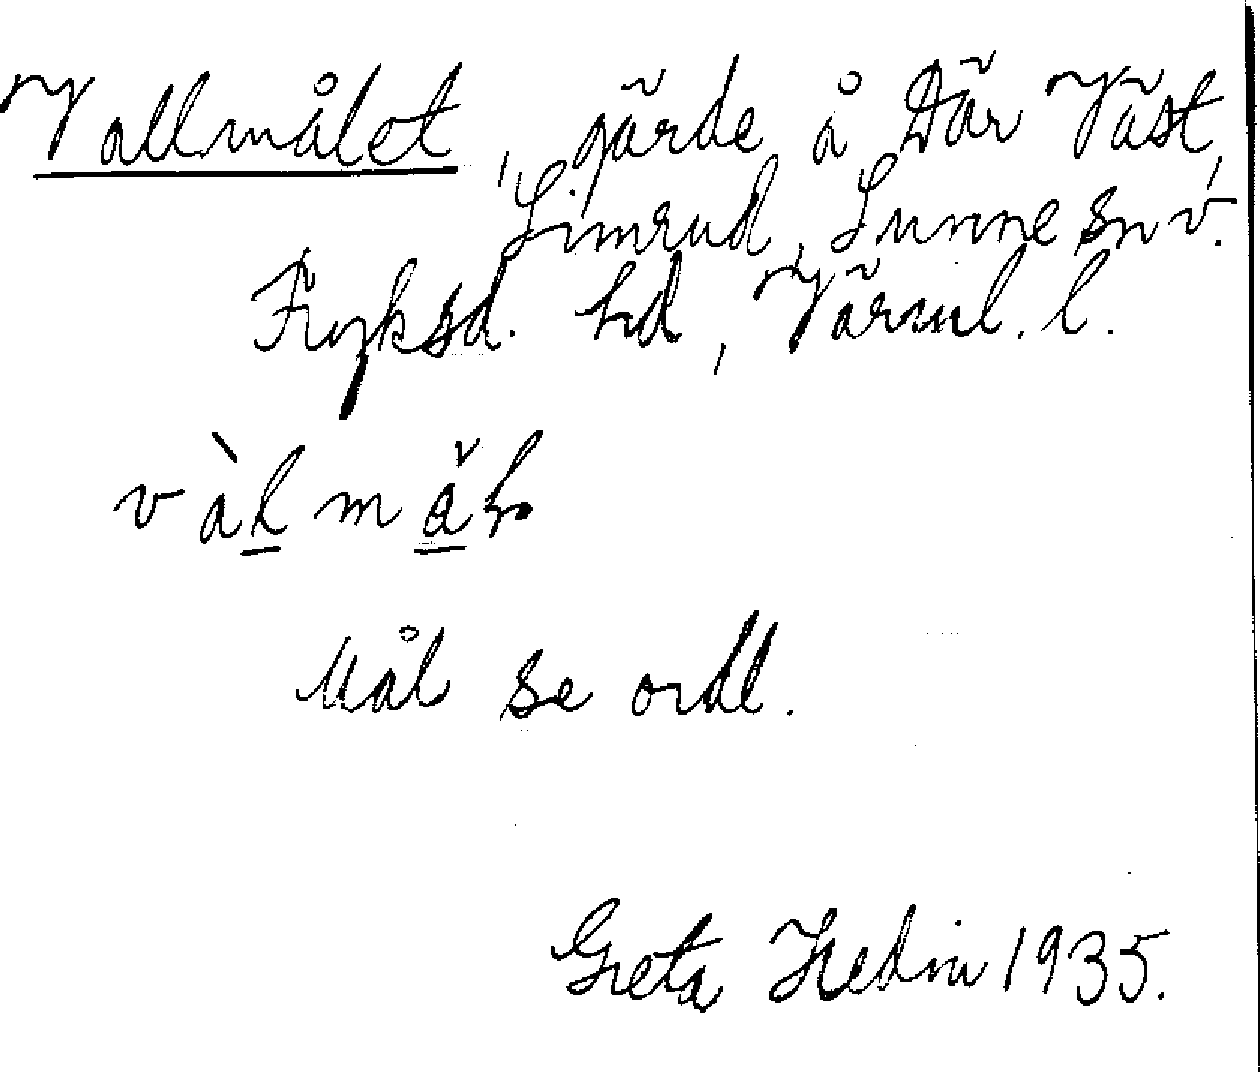 Vallmålet, gärde å Där Väst,
Simrud, Sunne sn v.
Fryksd. hd, Värml. l.
vàl mǎ
Mål se ordl.
Greta Hedin 1935.